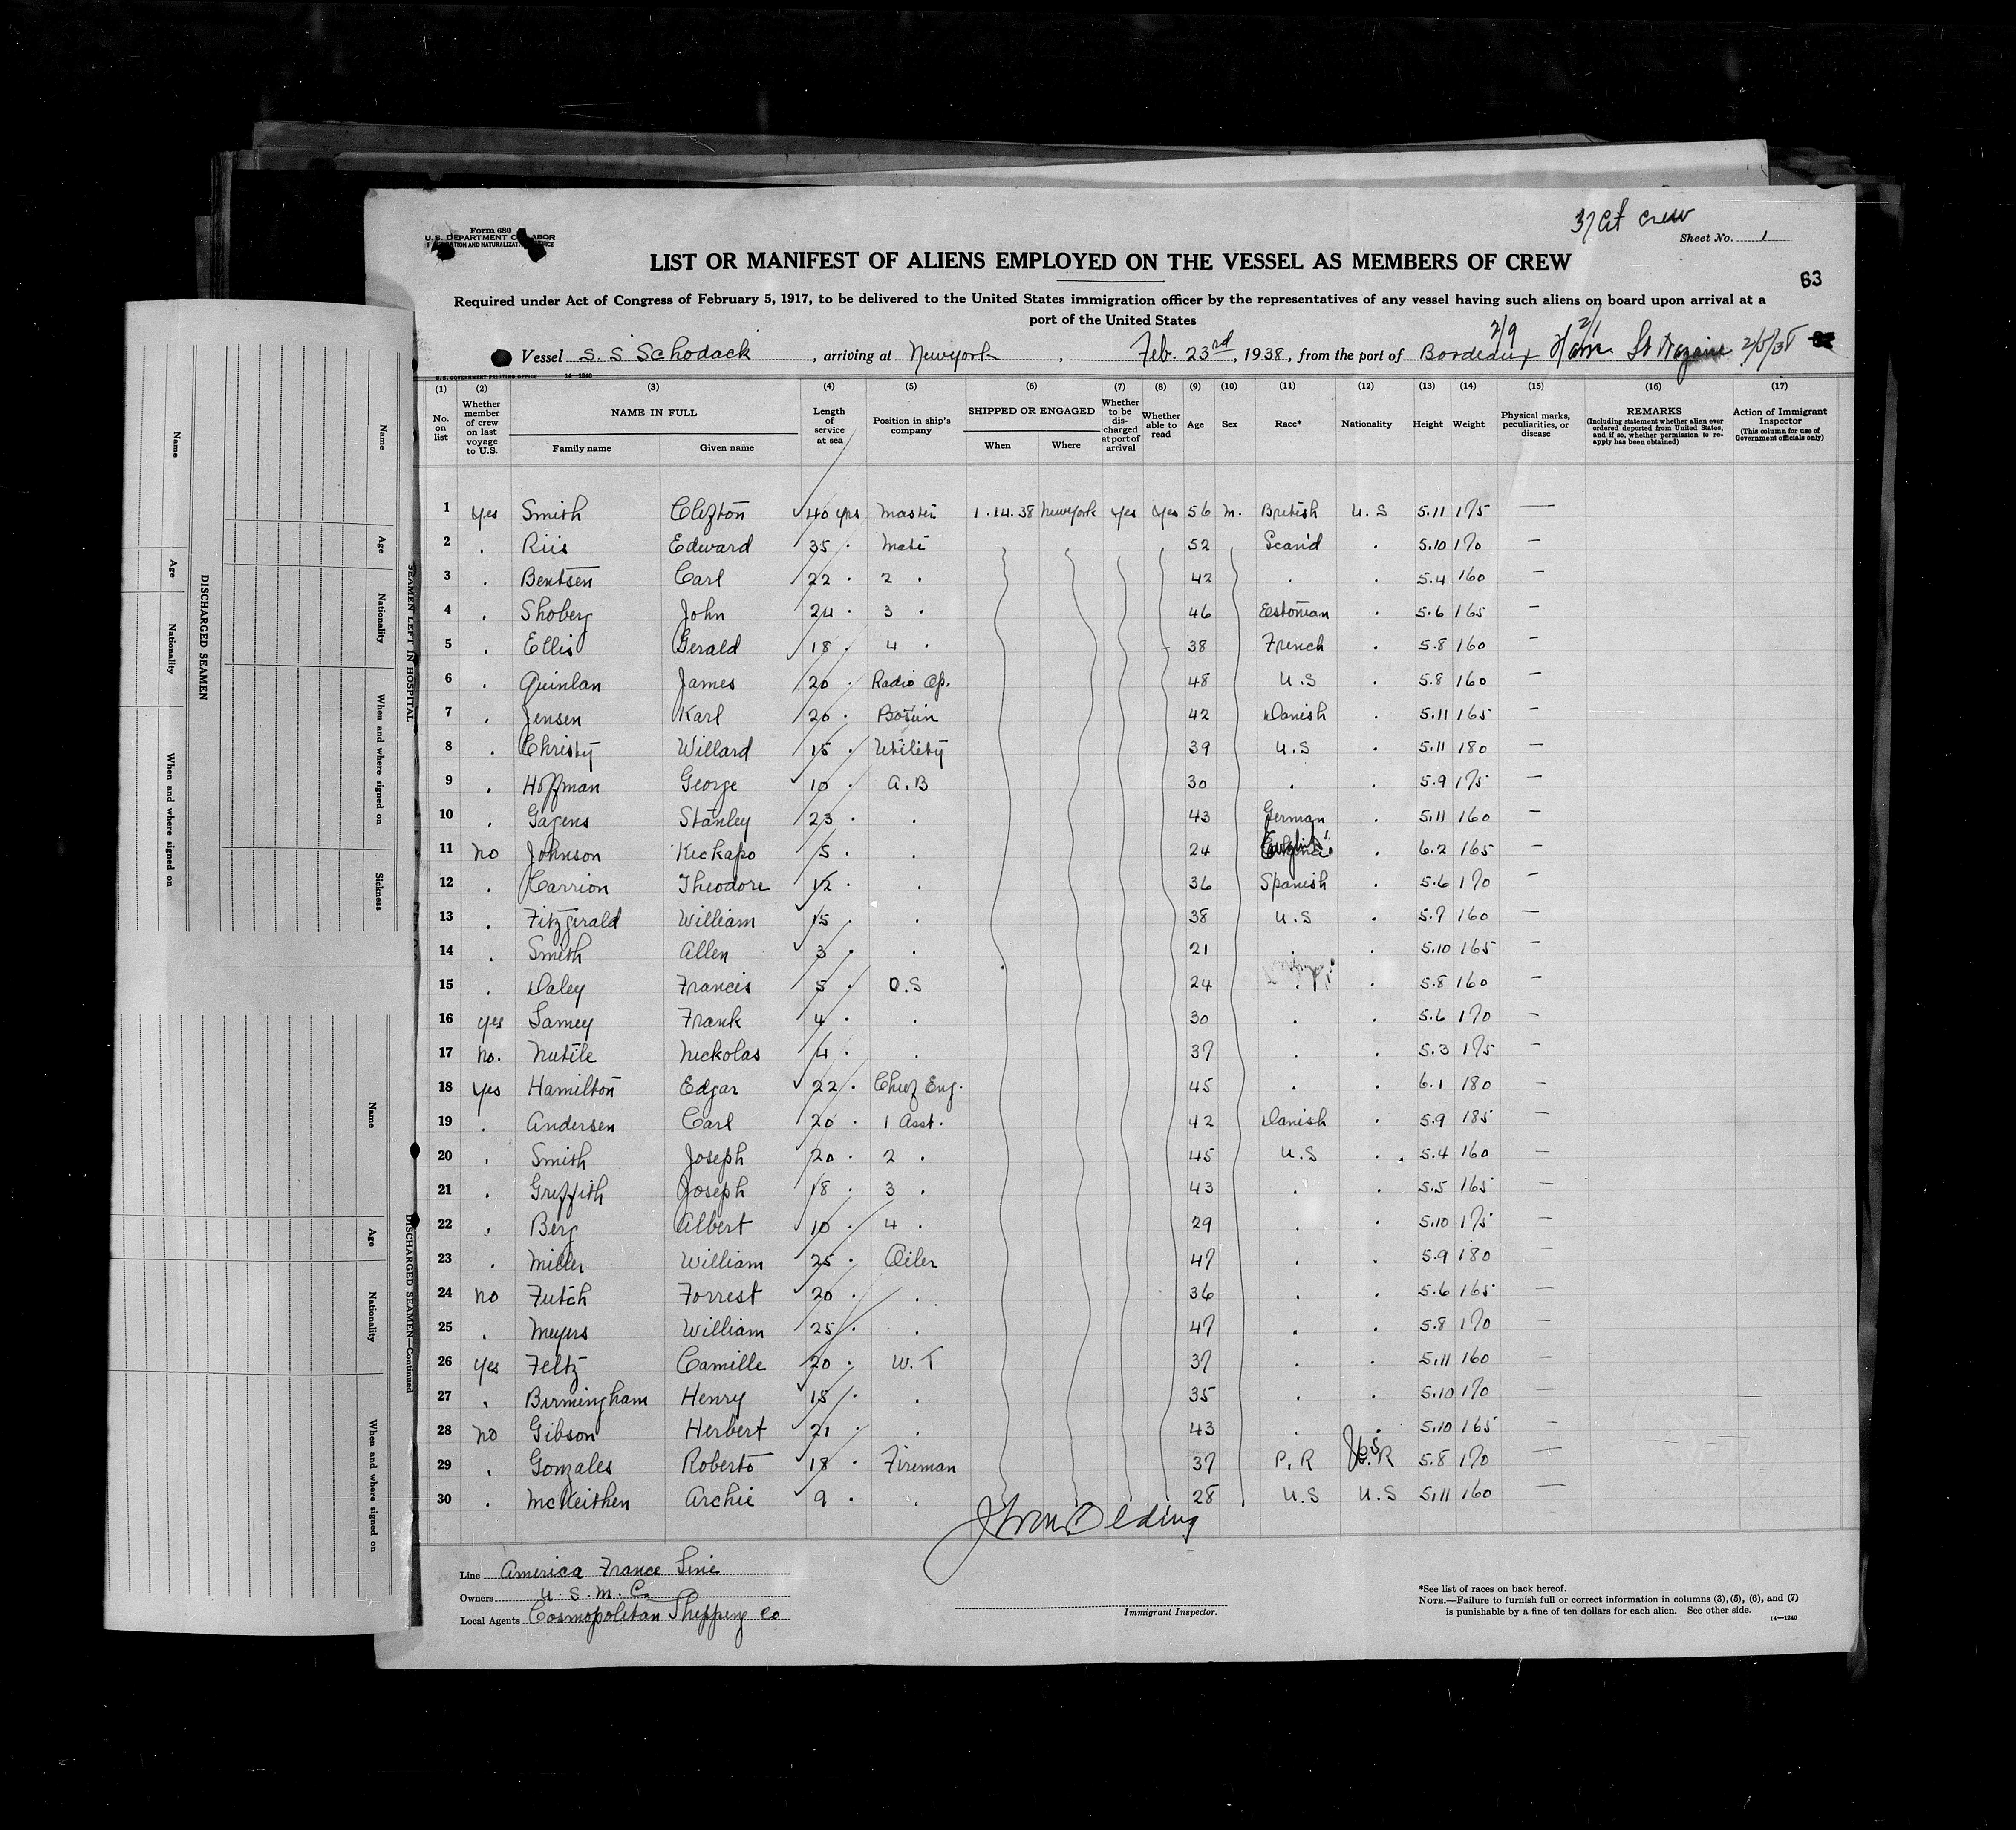 37 at crew
Form 680
U.S. DEPARTMENT OF LABOR
IMMIGRATION AND NATURALIZATION SERVICE
Sheet No. 1
LIST OR MANIFEST OF ALIENS EMPLOYED ON THE VESSEL AS MEMBERS OF CREW
63
Required under Act of Congress of February 5, 1917, to be delivered to the United States immigration officer by the representatives of any vessel having such aliens on board upon arrival at a
port of the United States
2/9 2/1
Vessel S. S Schodack, arriving at New York, Feb. 23rd, 1938, from the port of Bordeaux St Nazaire 2/5/38
U.S. GOVERNMENT PRINTING OFFICE 14—1240
(1) (2) (3) (4) (5) (6) (7) (8) (9) (10) (11) (12) (13) (14) (15) (16) (17)
No. on list
Whether member of crew on last voyage to U.S.
NAME IN FULL
Family name Given name
Length of service at sea
Position in ship's company
SHIPPED OR ENGAGED
When Where
Whether to be discharged at port of arrival
Whether able to read
Age Sex Race* Nationality Height Weight
Physical marks, peculiarities, or disease
REMARKS
(Including statement whether alien ever ordered deported from United States, and if so, whether permission to reapply has been obtained)
Action of Immigrant Inspector
(This column for use of Government officials only)
1 yes Smith Clifton 40 yrs Master 1.14.38 New York yes yes 56 m. British U.S 5.11 175 —
2 . Riis Edward 35 . Mate 52 Scand . 5.10 170 —
3 . Bentsen Carl 22 . 2 . 42 . . 5.4 160 —
4 . Shoberg John 24 . 3 . 46 Estonian . 5.6 165 —
5 . Ellis Gerald 18 . 4 . 38 French . 5.8 160 —
6 . Quinlan James 20 . Radio Op. 48 U.S . 5.8 160 —
7 . Jensen Karl 20 . Bosun 42 Danish . 5.11 165 —
8 . Christy Willard 15 . Utility 39 U.S . 5.11 180 —
9 . Hoffman George 10 . A.B 30 . . 5.9 175 —
10 . Gagens Stanley 23 . . 43 German . 5.11 160 —
11 no Johnson Kickapo 5 . . 24 English . 6.2 165 —
12 . Carrion Theodore 12 . . 36 Spanish . 5.6 170 —
13 . Fitzgerald William 15 . . 38 U.S . 5.7 160 —
14 . Smith Allen 3 . . 21 . . 5.10 165 —
15 . Daley Francis 5 . O.S 24 . . 5.8 160 —
16 yes Lamey Frank 4 . . 30 . . 5.6 170 —
17 no. Nutile Nickolas 4 . . 37 . . 5.3 175 —
18 yes Hamilton Edgar 22 . Chief Eng. 45 . . 6.1 180 —
19 . Andersen Carl 20 . 1 Asst. 42 Danish . 5.9 185 —
20 . Smith Joseph 20 . 2 . 45 U.S . . 5.4 160 —
21 . Griffith Joseph 18 . 3 . 43 . . 5.5 165 —
22 . Berg Albert 10 . 4 . 29 . . 5.10 175 —
23 . Miller William 25 . Oiler 47 . . 5.9 180 —
24 no Futch Forrest 20 . . 36 . . 5.6 165 —
25 . Meyers William 25 . . 47 . . 5.8 170 —
26 yes Feltz Camille 20 . W.T 37 . . 5.11 160 —
27 . Birmingham Henry 15 . . 35 . . 5.10 170 —
28 no Gibson Herbert 21 . . 43 . . 5.10 165 —
29 . Gonzales Roberto 18 . Fireman 37 P.R U.S 5.8 170 —
30 . McKeithen Archie 9 . . 28 U.S U.S 5.11 160 —
Line America France Line
Owners U.S.M.C.
Local Agents Cosmopolitan Shipping Co
Immigrant Inspector.
*See list of races on back hereof.
NOTE.—Failure to furnish full or correct information in columns (3), (5), (6), and (7)
is punishable by a fine of ten dollars for each alien. See other side.
14—1240
SEAMEN LEFT IN HOSPITAL
Name Age Nationality When and where signed on Sickness
DISCHARGED SEAMEN
Name Age Nationality When and where signed on
DISCHARGED SEAMEN—Continued
Name Age Nationality When and where signed on